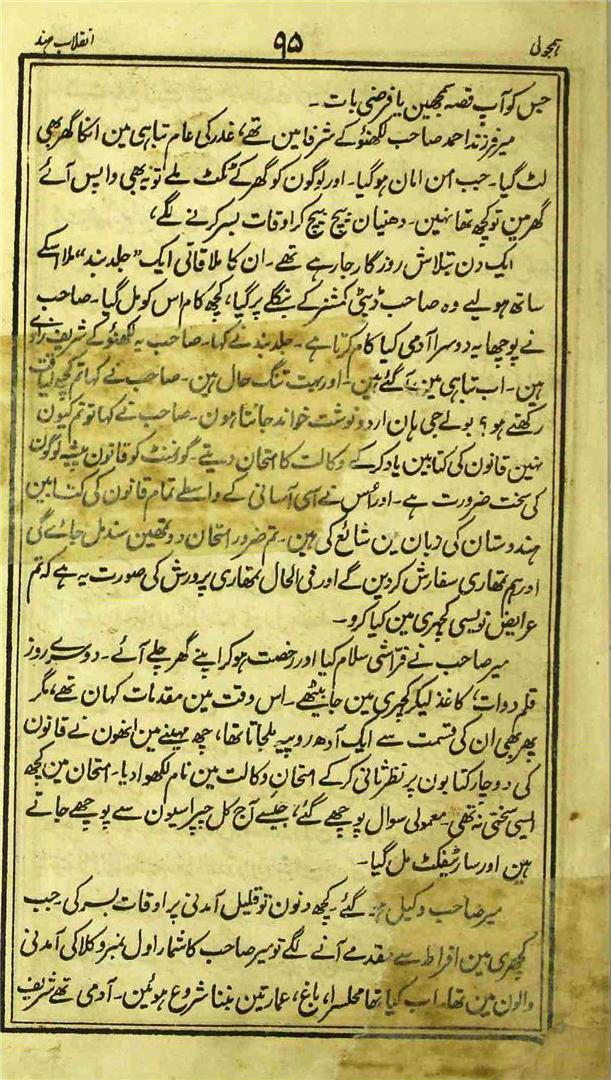 ہمجولی ۹۵ انقلاب ہند
جس کو آپ قصہ سمجھین یا فرضی بات۔
میر فرزند احمد صاحب لکھنؤ کے شرفا مین تھے، غدر کی عام تباہی مین انکا گھر بھی
لٹ گیا۔ جب امن امان ہو گیا۔ اور لوگون کو گھر کے ٹکٹ ملے تو یہ بھی واپس آئے
گھر مین تو کچھ تھا نہین۔ دھنیان بیچ بیچ کر اوقات بسر کرنے لگے،
ایک دن بتلاش روزگار جا رہے تھے۔ ان کا ملاقاتی ایک "جلد بند" ملا اسکے
ساتھ ہو لیے وہ صاحب ڈپٹی کمشنر کے بنگلے پر گیا، کچھ کام اس کو مل گیا۔ صاحب
نے پوچھا یہ دوسرا آدمی کیا کام کرتا ہے۔ جلد بند نے کہا۔ صاحب یہ لکھنؤ کے شریف زادے
ہین۔ اب تباہی مین آ گئے ہین۔ اور بہت تنگ حال ہین۔ صاحب نے کہا تم کچھ لیاقت
رکھتے ہو؟ بولے جی ہان اردو نوشت خواند جانتا ہون۔ صاحب نے کہا تو تم کیون
نہین قانون کی کتابین یاد کر کے وکالت کا امتحان دیتے۔ گورنمنٹ کو قانون پیشہ لوگون
کی سخت ضرورت ہے۔ اور اُس نے اسی آسانی کے واسطے تمام قانون کی کتابین
ہندوستان کی زبان مین شائع کی ہین۔ تم ضرور امتحان دو تمھین سند مل جائے گی
اور ہم تمھاری سفارش کر دین گے اور فی الحال تمھاری پرورش کی صورت یہ ہے کہ تم
عرایض نویسی کچہری مین کیا کرو۔
میر صاحب نے فرّاشی سلام کیا اور رخصت ہو کر اپنے گھر چلے آئے۔ دوسرے روز
قلم دوات، کاغذ لیکر کچہری مین جا بیٹھے۔ اس وقت مین مقدمات کہان تھے، مگر
پھر بھی ان کی قسمت سے ایک آدھ روپیہ ملجاتا تھا، چھ مہینے مین انھون نے قانون
کی دو چار کتابون پر نظر ثانی کر کے امتحان وکالت مین نام لکھوا دیا۔ امتحان مین کچھ
ایسی سختی نہ تھی۔ معمولی سوال پوچھے گئے، جیسے آج کل چپراسیون سے پوچھے جاتے
ہین اور سارٹیفکٹ مل گیا۔
میر صاحب وکیل ہو گئے۔ کچھ دنون تو قلیل آمدنی پر اوقات بسر کی جب
کچہری مین افراط سے مقدمے آنے لگے تو میر صاحب کا شمار اول نمبر وکلا کی آمدنی
والون مین تھا۔ اب کیا تھا محلسرا، باغ، عمارتین بننا شروع ہوئین۔ آدمی تھے شریف